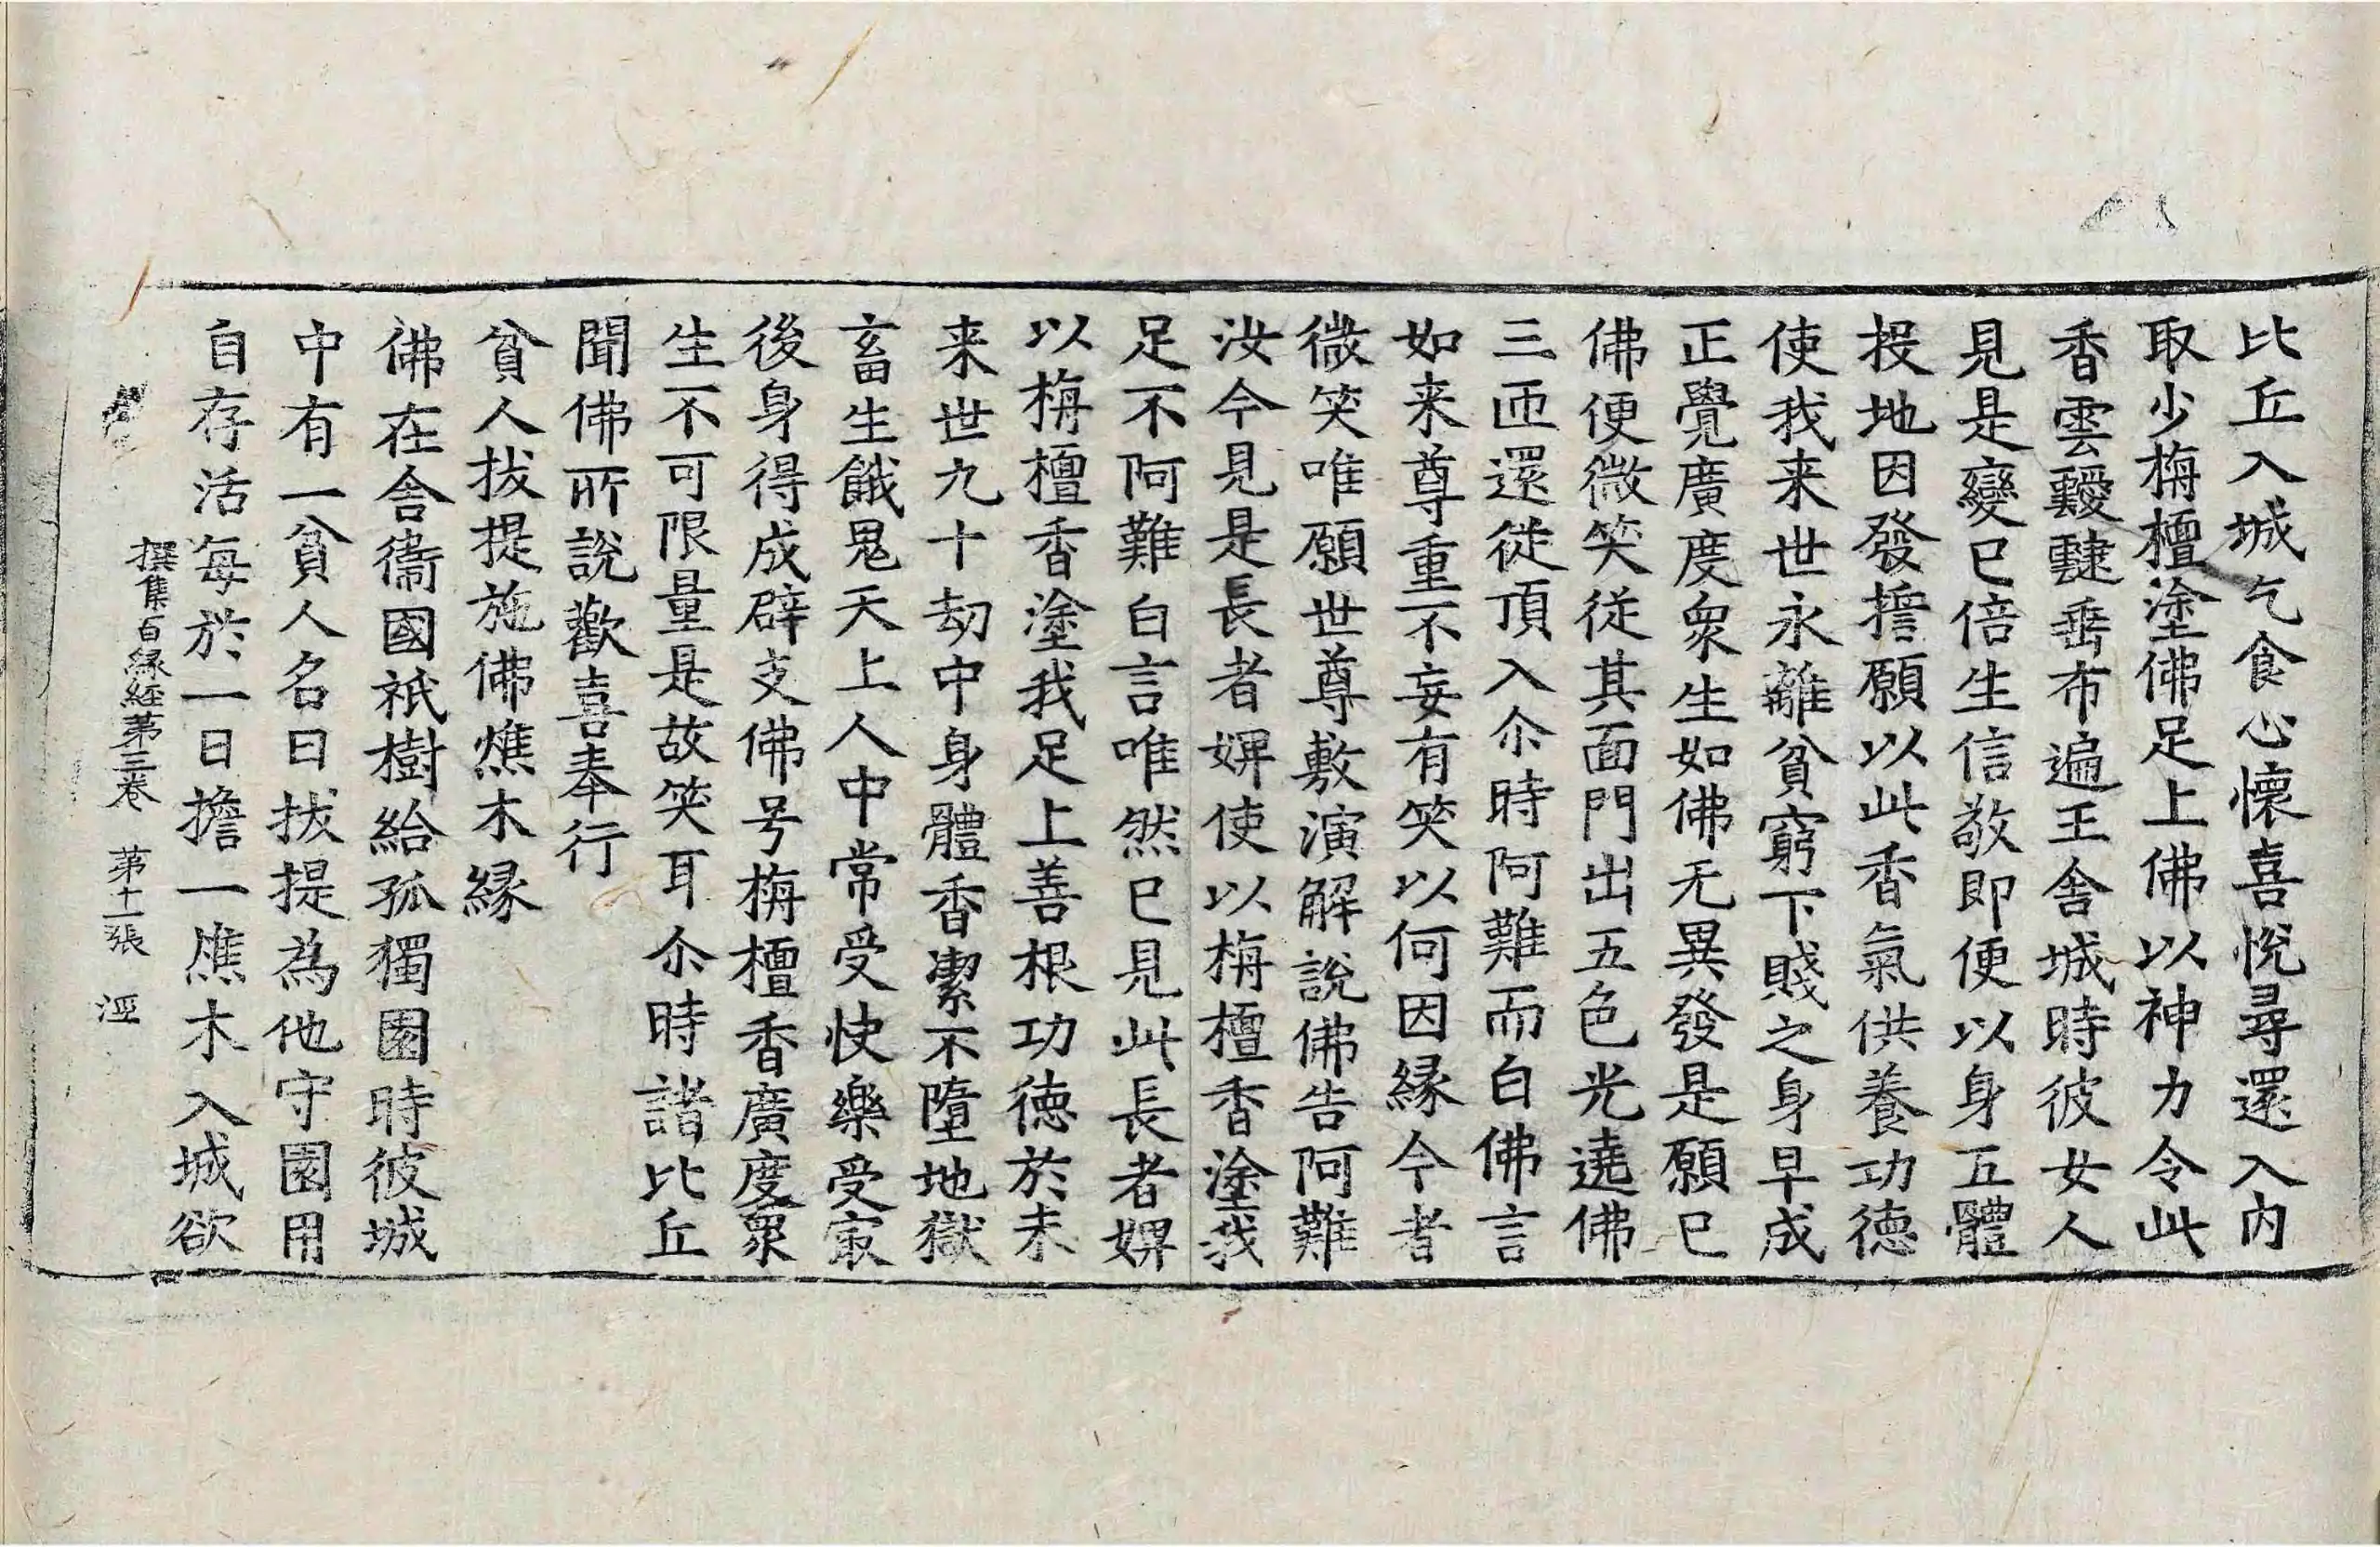 比丘入城乞食心懷喜悅尋還入內
取少栴檀塗佛足上佛以神力令此
香雲靉靆垂布遍王舍城時彼女人
見是變已倍生信敬即便以身五體
投地因發擔願以此香氣供養功德
使我来世永離貧窮下賤之身早成
正覺廣度衆生如佛无異發是願已
佛便微笑從其面門出五色光遶佛
三匝還從頂入尒時阿難而白佛言
如来尊重不妄有笑以何因緣今者
微笑唯願世尊敷演解說佛告阿難
汝今見是長者婢使以栴檀香塗我
足不阿難白言唯然已見此長者婢
以栴檀香塗我足上善根功德於未
来世九十劫中身體香潔不墮地獄
畜生餓鬼天上人中常受快樂受冣
後身得成辟支佛号栴檀香廣度衆
生不可限量是故笑耳尒時諸比丘
聞佛所說歡喜奉行
貧人拔提施佛燋木緣
佛在舍衛國祇樹給孤獨園時彼城
中有一貧人名曰拔提為他守園用
自存活每於一日擔一燋木入城欲
撰集百緣經第三卷 第十一張 涇